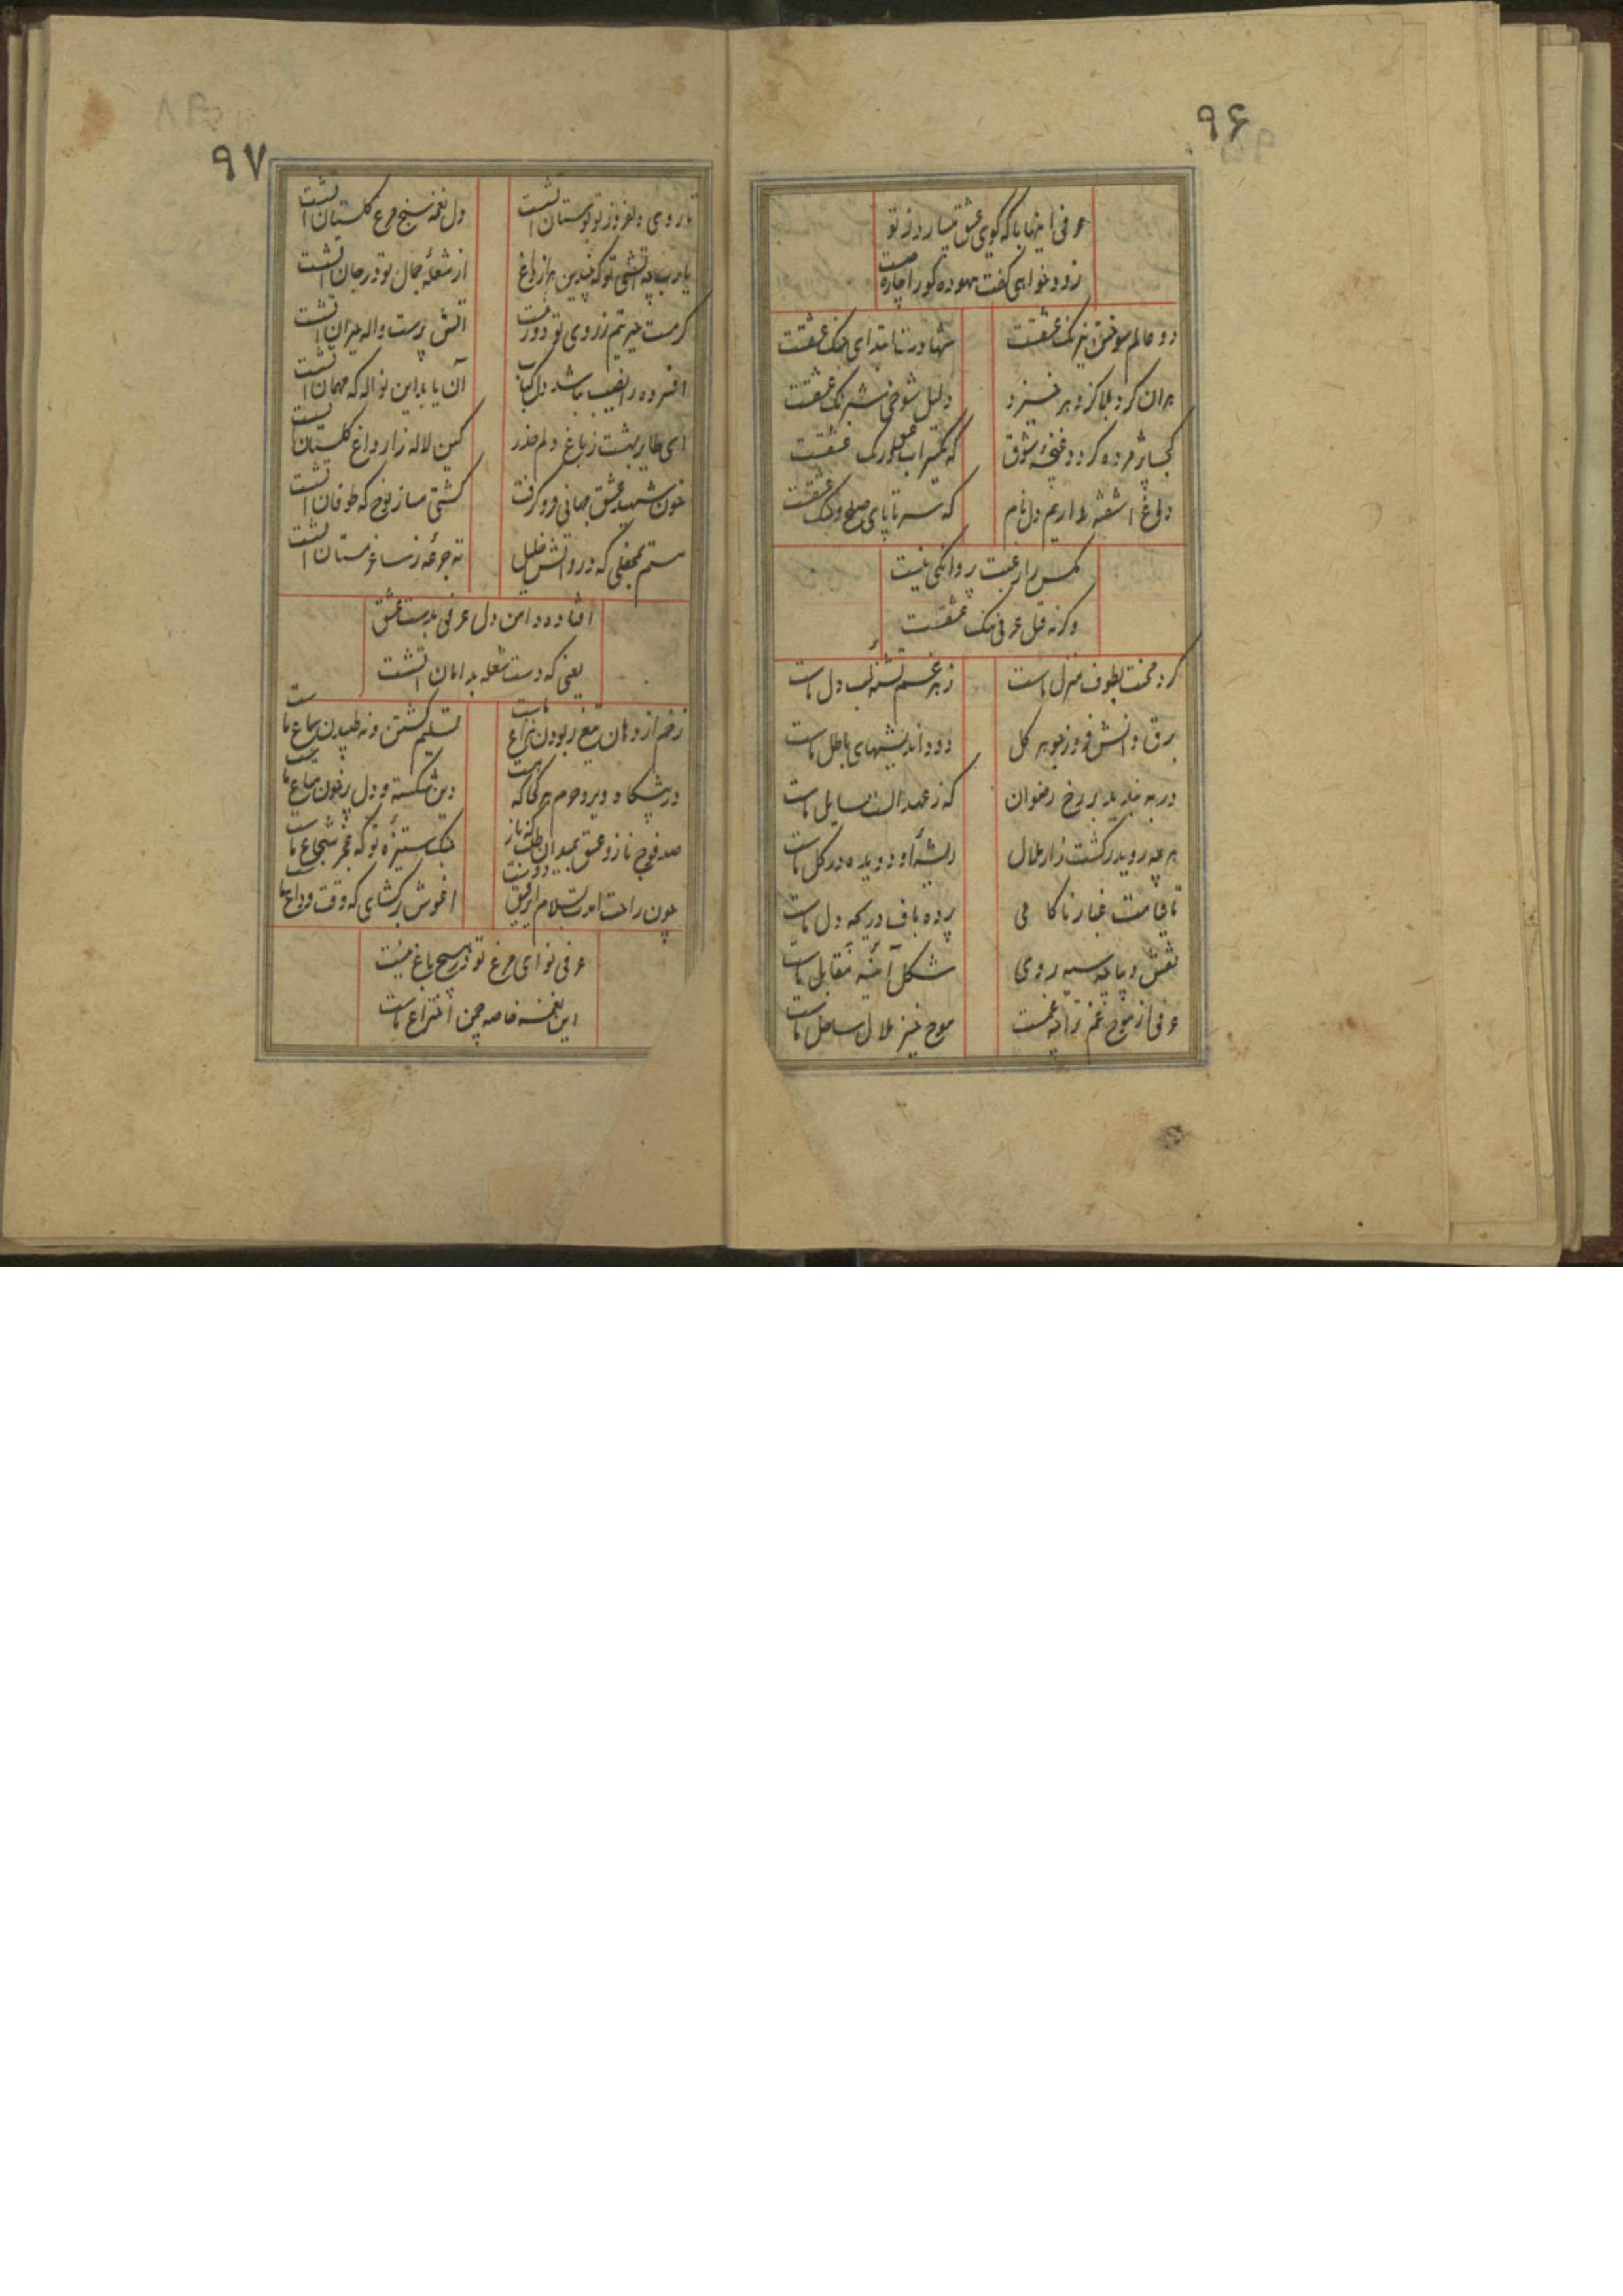 ۹۶
عرفی اینها با که گوی عشق
زود خواهی گفت بیهوده گو را چاره چیست
دو عالم سوختن نیرنگ عشقست
شهادت ابتدای جنگ عشقست
بر ان گرد بلا کز دهر خیزد
دلیل شوخی شبرنگ عشقست
کجا پژمرده گردد غنچه شوق
که
دلی آشفته داریم دل نام
که سر تا پای صلح و جنگ عشقست
مگس را رغبت پروانگی نیست
وگرنه قتل عرفی ننگ عشقست
گرد محنت بطوف منزل ماست
زهر غم تشنه لب دل ماست
برق دانش فروز جوهر کل
دود اندیشهای باطل ماست
در به نبدید بر رخ رضوان
که ز عهد الست سایل ماست
هر چه روید ز کشت زار ملال
ریشه او دویده در گل ماست
تا قیامت غبار ناکامی
پرده باف دریچه دل ماست
نقش دیباچه سیه روی
شکل آئینه مقابل ماست
عرفی از موج غم ترا چه غمست
موج خیز ملال ساحل ماست
۹۷
تا روی دلفروز تو بوستان اتشست
دل نغمه سنج مرغ گلستان اتشست
یارب چه اتشی تو که چندین هزار داغ
از شعله جمال تو در جان اتشست
گرمست حیرتم ز روی تو دور نیست
اتش پرست واله حیران اتشست
افسرده را نصیب نباشد دل کباب
آن یابد این نواله که مهمان اتشست
ای طایر بهشت ز باغ دلم حذر
کین لاله زار داغ گلستان اتشست
خون شهید عشق جهانی فرو گرفت
کشتی مساز نوح که طوفان اتشست
مستم بمحفلی که درو اتش خلیل
ته جرعه ز ساغر مستان اتشست
افتاده دامن دل عرفی بدست عشق
یعنی که دست شعله بدامان اتشست
زخم از دهان تیغ ربودن نزاع ماست
تسلیم گشتن و نه طپیدن سماع ماست
در پیشگاه دیر و حرم هر کجا که هست
دین شکسته و دل پرخون متاع ماست
صد فوج ناز و عشق بمیدان
جنگ ستیزه تو که فخر شجاع ماست
چون راحت امد بسلام ای رفیق دوست
اغوش برگشای که وقت وداع ماست
عرفی نوای مرغ تو در هیچ باغ نیست
این نغمه خاصه چمن اختراع ماست